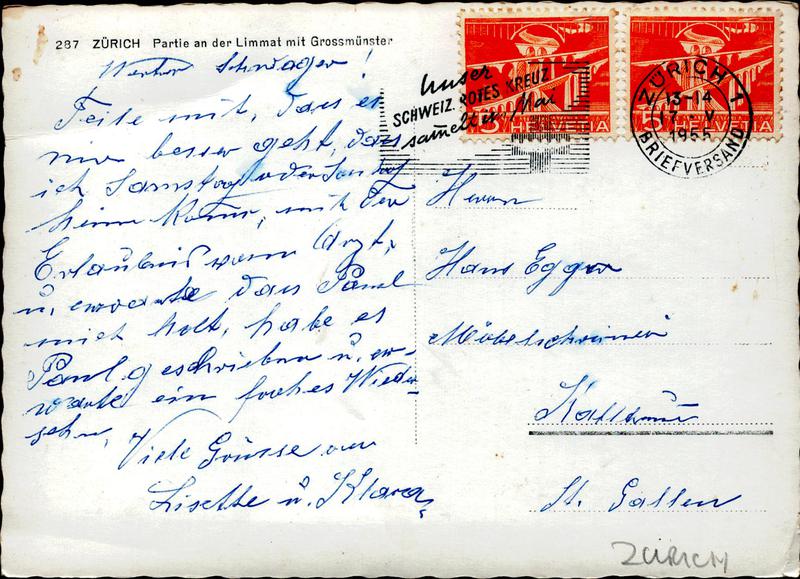 287 ZÜRICH Partie an der Limmat mit Grossmünster
Werter Schwager!
Teile mit, dass es
mir besser geht, dass
ich Samstag oder Sontag
heim komme, mit der
Erlaubnis vom Arzt,
u. erwarte dass Paul
mich holt, habe es
Paul geschrieben u. er-
warte ein frohes Wieder-
sehn,
Viele Grüsse von
Lisette u. Klara,
unser
SCHWEIZ. ROTES KREUZ
sammelt im Mai
HELVETIA
HELVETIA
ZÜRICH 1
13-14
17. V
1955
BRIEFVERSAND
Herrn
Hans Egger
Möbelschreiner
St. Gallen
ZÜRICH